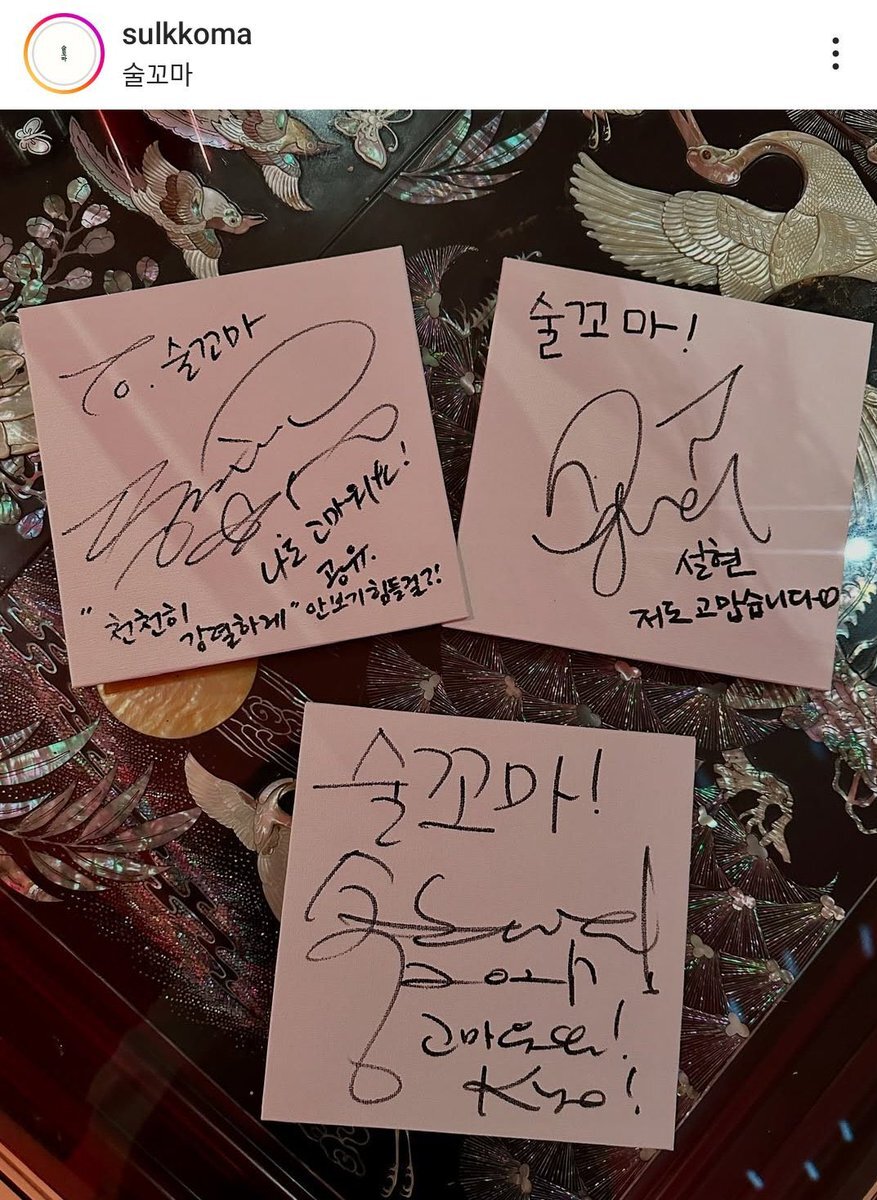 sulkkoma
술꼬마
To. 술꼬마
나도 고마워요!
공유.
"천천히
강렬하게" 안보기힘들걸?!
술꼬마!
설현
저도 고맙습니다♡
술꼬마!
고마워요!
Kyo!